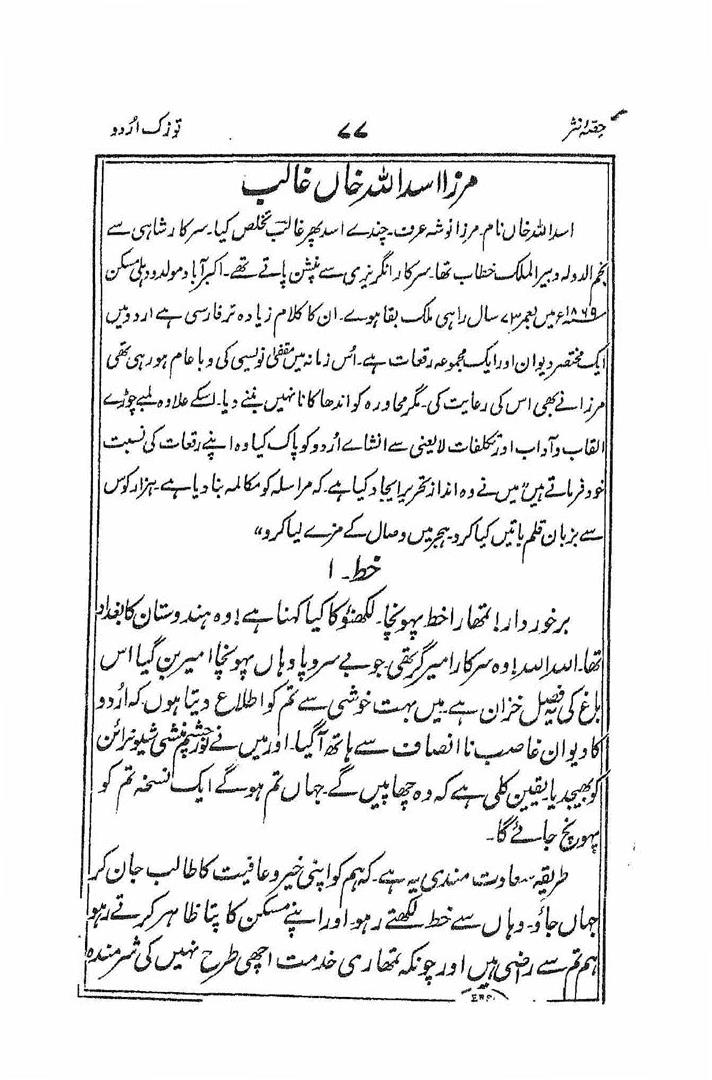 حصۂ نثر ۷۷ توزک اُردو
مرزا اسد اللہ خاں غالب
اسد اللہ خاں نام۔ مرزا نوشہ عرف۔ چندے اسد پھر غالب تخلص کیا۔ سرکار شاہی سے
نجم الدولہ دبیر الملک خطاب تھا۔ سرکار انگریزی سے پنشن پاتے تھے۔ اکبرآباد مولد و دہلی مسکن
۱۸۶۹ء میں بعمر ۷۳ سال راہی ملک بقا ہوے۔ ان کا کلام زیادہ تر فارسی ہے اردو میں
ایک مختصر دیوان اور ایک مجموعہ رقعات ہے۔ اُس زمانہ میں مقفیٰ نویسی کی وبا عام ہو رہی تھی
مرزا نے بھی اس کی رعایت کی۔ مگر محاورہ کو اندھا کانا نہیں بننے دیا۔ اسکے علاوہ لمبے چوڑے
القاب و آداب اور تکلفات لایعنی سے انشاے اُردو کو پاک کیا وہ اپنے رقعات کی نسبت
خود فرماتے ہیں "میں نے وہ انداز تحریر ایجاد کیا ہے۔ کہ مراسلہ کو مکالمہ بنا دیا ہے۔ ہزار کوس
سے بزبان قلم باتیں کیا کرو۔ ہجر میں وصال کے مزے لیا کرو"
خط۔ ۱
برخوردار! تمھارا خط پہونچا۔ لکھنؤ کا کیا کہنا ہے! وہ ہندوستان کا بغداد
تھا۔ اللہ اللہ! وہ سرکار امیر گر تھی۔ جو بے سروپا وہاں پہونچا امیر بن گیا اس
باغ کی یہ فصل خزاں ہے۔ میں بہت خوشی سے تم کو اطلاع دیتا ہوں کہ اُردو
کا دیوان غاصب ناانصاف سے ہاتھ آگیا۔ اور میں نے نورچشم منشی شیونرائن
کو بھیجدیا۔ یقین کلی ہے کہ وہ چھاپیں گے۔ جہاں تم ہوگے ایک نسخہ تم کو
پہونچ جائے گا۔
طریقہ سعادت مندی یہ ہے۔ کہ ہم کو اپنی خیر و عافیت کا طالب جان کر
جہاں جاؤ۔ وہاں سے خط لکھتے رہو اور اپنے مسکن کا پتا ظاہر کرتے رہو
ہم تم سے راضی ہیں اور چونکہ تمھاری خدمت اچھی طرح نہیں کی شرمندہ